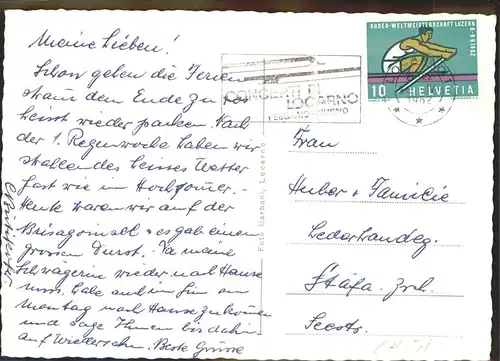 Meine Lieben!
Schon gehen die Ferien
stram dem Ende zu & es
heisst wieder packen. Nach
der 1. Regenwoche haben wir
strahlendes heisses Wetter
fast wie im Hochsommer.
Heute waren wir auf der
Brisagoinsel & es gab einen
grossen Durst. Da meine
Schwägerin wieder nach Hause
muss, habe auch im Sinn am
Montag nach Hause zu kommen
und sage Ihnen bis dahin
auf Wiedersehen. Beste Grüsse
CONCERTI DI
LOCARNO
MAGGIO-GIUGNO
RUDER-WELTMEISTERSCHAFT LUZERN
6.-9.9.1962
10 HELVETIA
1962
Foto Garbani, Locarno
Frau
Huber & Familie
Lederhandlg.
Stäfa Zch.
Seestr.